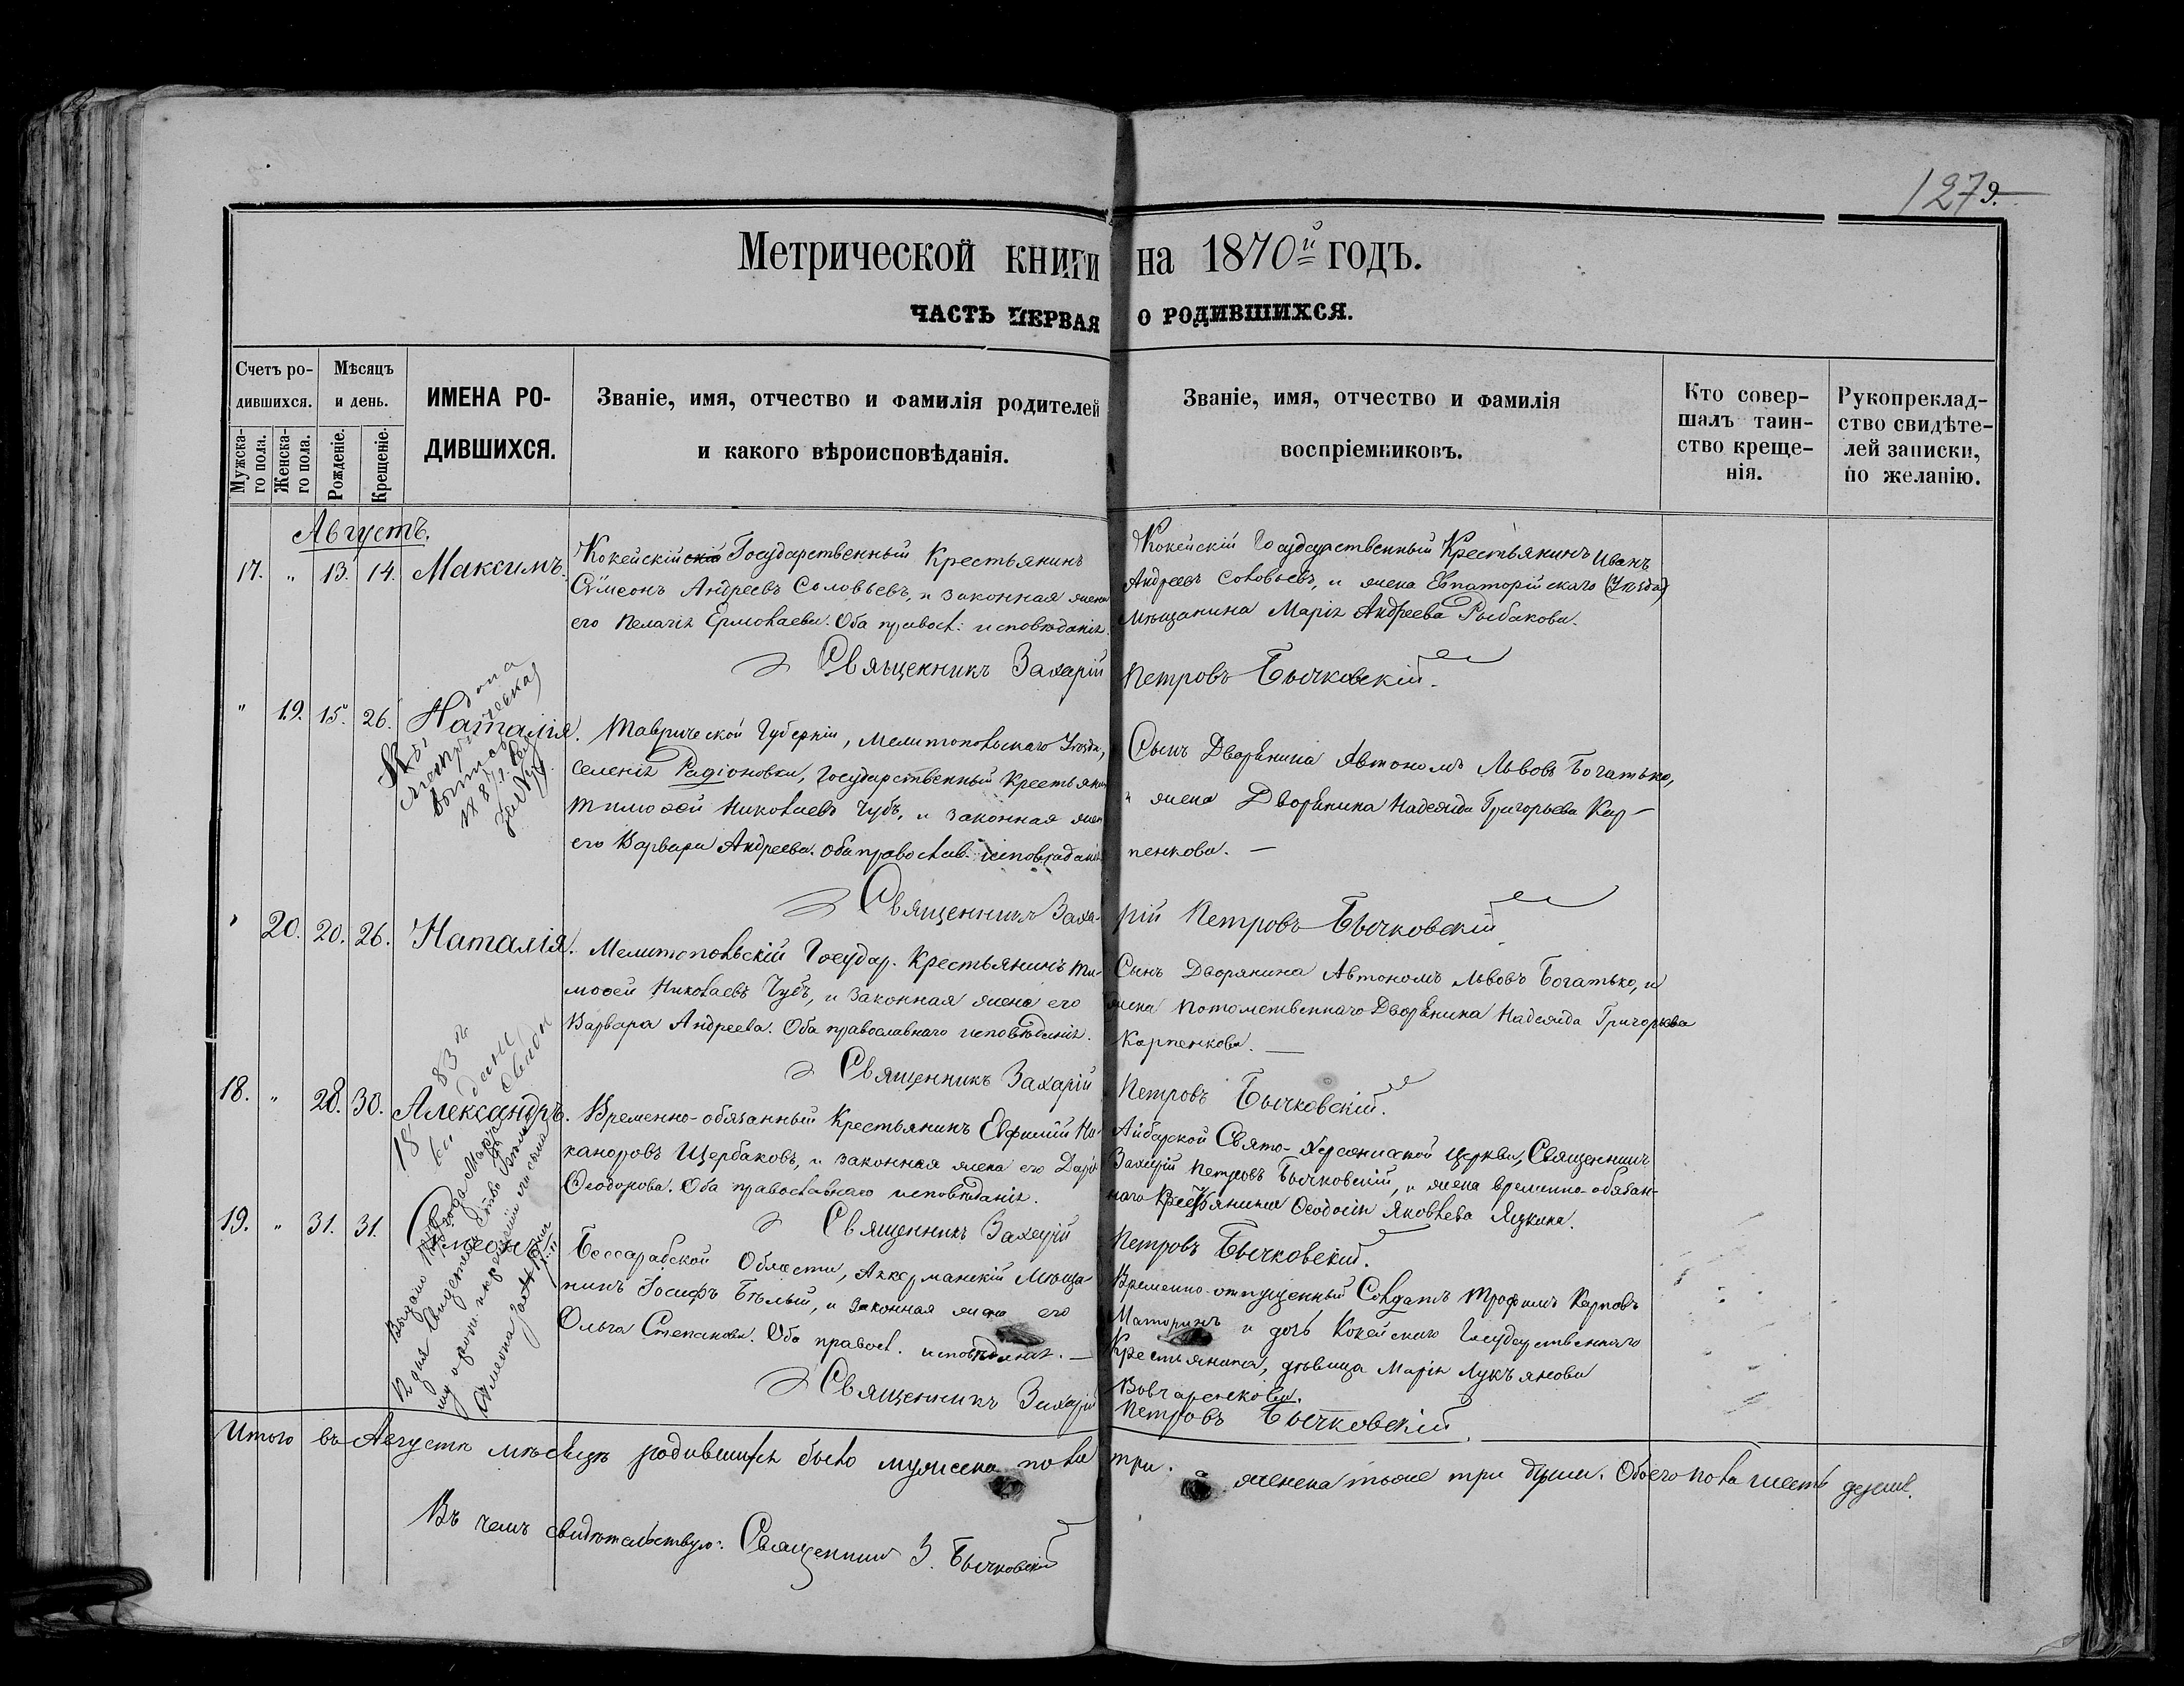 1279.
Метрической книги на 1870й годъ.
ЧАСТЬ ПЕРВАЯ О РОДИВШИХСЯ.
Счетъ ро-
дившихся.
Мужска-
го пола.
Женска-
го пола.
Мѣсяцъ
и день.
Рожденіе.
Крещеніе.
ИМЕНА РО-
ДИВШИХСЯ.
Званіе, имя, отчество и фамилія родителей
и какого вѣроисповѣданія.
Званіе, имя, отчество и фамилія
воспріемниковъ.
Кто совер-
шалъ таин-
ство креще-
нія.
Рукопреклад-
ство свидѣте-
лей записки,
по желанію.
Августъ.
17. " 13. 14. Максимъ.
Кокейскій Государственный Крестьянинъ
Сѵмеонъ Андреевъ Соловьевъ, и законная жена
его Пелагія Ермолаева. Оба правосл: исповѣданія.
Кокейскій Государственный Крестьянинъ Иванъ
Андреевъ Соловьевъ, и жена Евпаторійскаго (Уѣзда)
Мѣщанина Марія Андреева Рыбакова.
Священникъ Захарій Петровъ Бычковскій.
" 19. 15. 26. Наталія.
Таврической Губерніи, Мелитопольскаго Уѣзда,
селенія Радіоновки, Государственный Крестьянин
Тимоѳей Николаевъ Чубъ, и законная жен
его Варвара Андреева. Оба православ. исповѣданія
Сынъ Дворянина Автономъ Львовъ Богатько,
и жена Дворянина Надежда Григорьева Кар-
пенкова. —
Священникъ Заха- рій Петровъ Бычковскій
" 20. 20. 26. Наталія.
Мелитопольскій Государ. Крестьянинъ Ти-
моѳей Николаевъ Чубъ, и законная жена его
Варвара Андреева. Оба православнаго исповѣданія.
Сынъ Дворянина Автономъ Львовъ Богатько, и
жена Потомственнаго Дворянина Надежда Григорьева
Карпенкова. —
Священникъ Захарій Петровъ Бычковскій.
18. " 28. 30. Александръ.
Временно-обязанный Крестьянинъ Евфимій Ни-
каноровъ Щербаковъ, и законная жена его Дарія
Ѳеодорова. Оба православнаго исповѣданія.
Айбарской Свято-Херсонисской Церкви, Священникъ
Захарій Петровъ Бычковскій, и жена временно-обязан-
наго Крестьянина Ѳеодосія Яковлева Яцкина.
Священникъ Захарій Петровъ Бычковскій.
19. " 31. 31. Сѵмеонъ
Бессарабской Области, Аккерманскій Мѣща-
нинъ Іосифъ Бѣлый, и законная жена его
Ольга Степанова. Оба правосл. исповѣданія. —
Временно-отпущенный Солдатъ Трофимъ Карповъ
Маторинъ и дочь Кокейскаго Государственнаго
Крестьянина, дѣвица Марія Лукъянова
Вовчаренкова.
Священникъ Захарій Петровъ Бычковскій.
Итого въ Августѣ мѣсяцѣ родившихся было мужеска пола три.
женска тоже три души. Обоего пола шесть душъ.
Въ чемъ свидѣтельствую: Священникъ З. Бычковскій